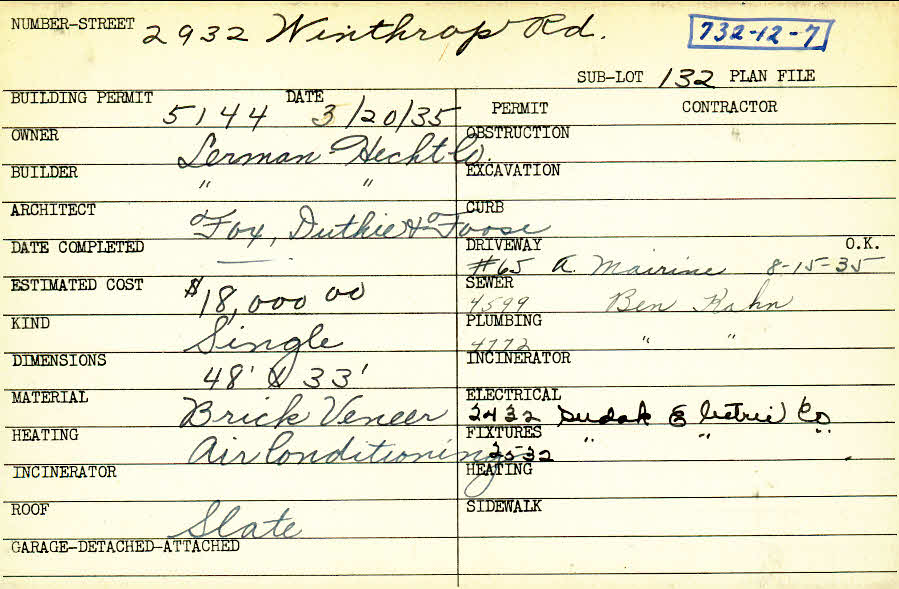 NUMBER-STREET 2932 Winthrop Rd. 732-12-7
SUB-LOT 132 PLAN FILE
BUILDING PERMIT 5144 DATE 3/20/35 PERMIT CONTRACTOR
OWNER Lerman-Hecht Co. OBSTRUCTION
BUILDER " " EXCAVATION
ARCHITECT Fox, Duthie & Foose CURB
DATE COMPLETED DRIVEWAY #65 A. Mairine 8-15-35 O.K.
ESTIMATED COST $18,000 00 SEWER 4599 Ben Kahn
KIND Single PLUMBING 4772 " "
DIMENSIONS 48' X 33' INCINERATOR
MATERIAL Brick Veneer ELECTRICAL 2432 Sudak Electric Co
HEATING Air Conditioning FIXTURES 2532 " " "
INCINERATOR HEATING
ROOF Slate SIDEWALK
GARAGE-DETACHED-ATTACHED